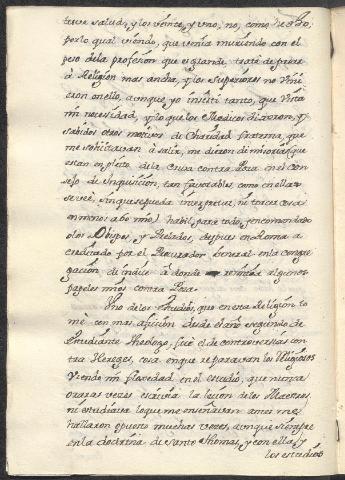 tuve salud, y los veinte, y uno, no, como he dho;
por lo qual viendo, que venia muriendo con el
peso de la profesion que es grande, trate de passar
a Religion mas ancha, y los superiores no vini-
eron en ello, aunque yo insisti tanto, que vista
mi necesidad, y lo que los Medicos dixeron, y
sabidos otros motivos de Charidad fraterna, que
me obligavan à salir, me dieron dimisorias, que
estan en pleito de la causa contra Poza en el con
sejo de Inquisicion, tan favorables, como en ellas
se vee, sin que se pueda interpretar, ni torcer cosa
en menos abo mio, habil para todo, y encomendado
a los Obispos, y Prelados, despues en Roma a
creditado por el Procurador General en la congre
gacion de indice à donde remitio algunos
papeles mios contra Poza.
Uno de los estudios, que en esta Religion to
mè con mas aficion desde el año segundo de
Estudiante Theologo, fue el de controversias con
tra Hereges, cosa en que reparavan los Religiosos
viendo mi floxedad en el estudio, que nunca
o raras veces escrivia la licion de los Maestros
ni estudiava lo que me enseñavan antes me
hallaron opuesto muchas veces, aunque siempre
en la doctrina de santo Thomas, y con ella, y
los estudios